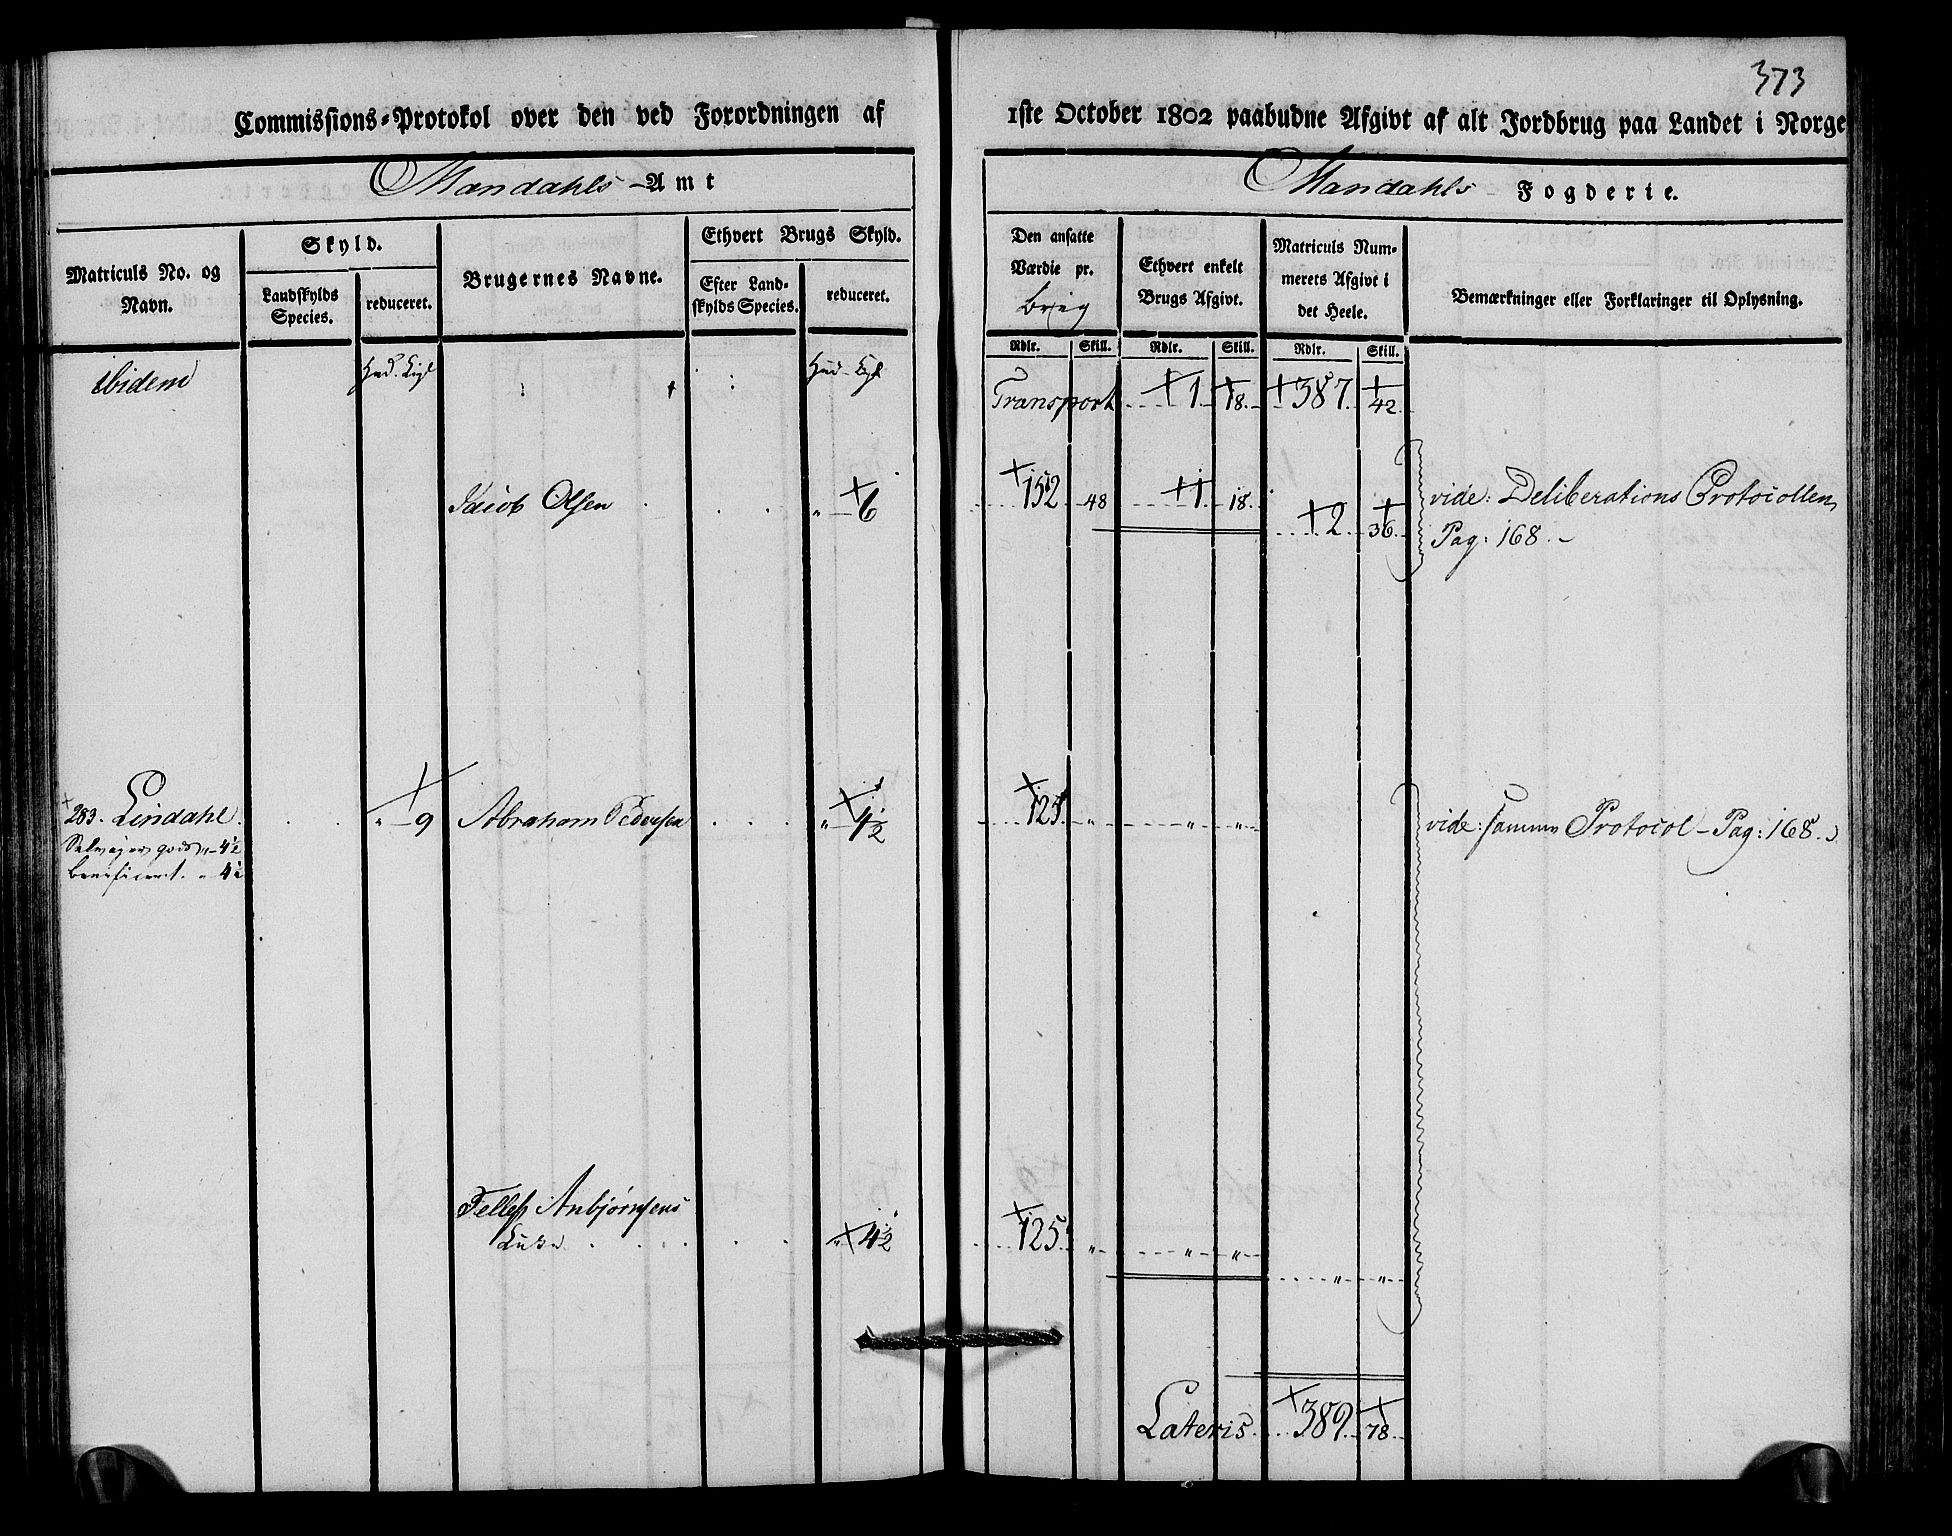 373
Commissions-Protokol over den ved Forordningen af 1ste October 1802 paabudne Afgivt af alt Jordbrug paa Landet i Norge
Mandahls Amt
Mandahls Fogderie.
Matriculs No. og Navn.
Skyld.
Landskylds Species.
reduceret.
Brugernes Navne.
Ethvert Brugs Skyld.
Efter Landskylds Species.
reduceret.
Den ansatte Værdie pr. brug
Ethvert enkelt Brugs Afgivt.
Matriculs Nummerets Afgivt i det Heele.
Bemærkninger eller Forklaringer til Oplysning.
Rdlr. Skill. Rdlr. Skill. Rdlr. Skill.
ibidem
Transport 1 18 387 42
Jacob Olsen 6 152 48 1 18
2 36
vide: Deliberations Protocollen
Pag: 168
283. Lindahl 9 Abraham Pedersen 4½ 125
vide: samme Protocol Pag: 168
4½
beneficeret 4½
Tellef Anbjørnsens
4½ 125 " " "
" "
Lateris 389 78